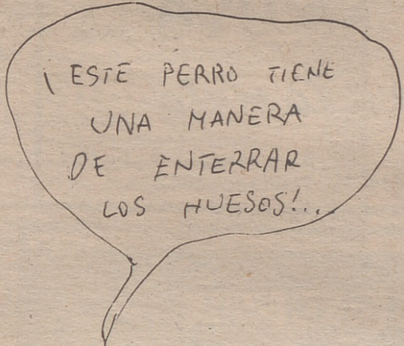 ¡ESTE PERRO TIENE
UNA MANERA
DE ENTERRAR
LOS HUESOS!...